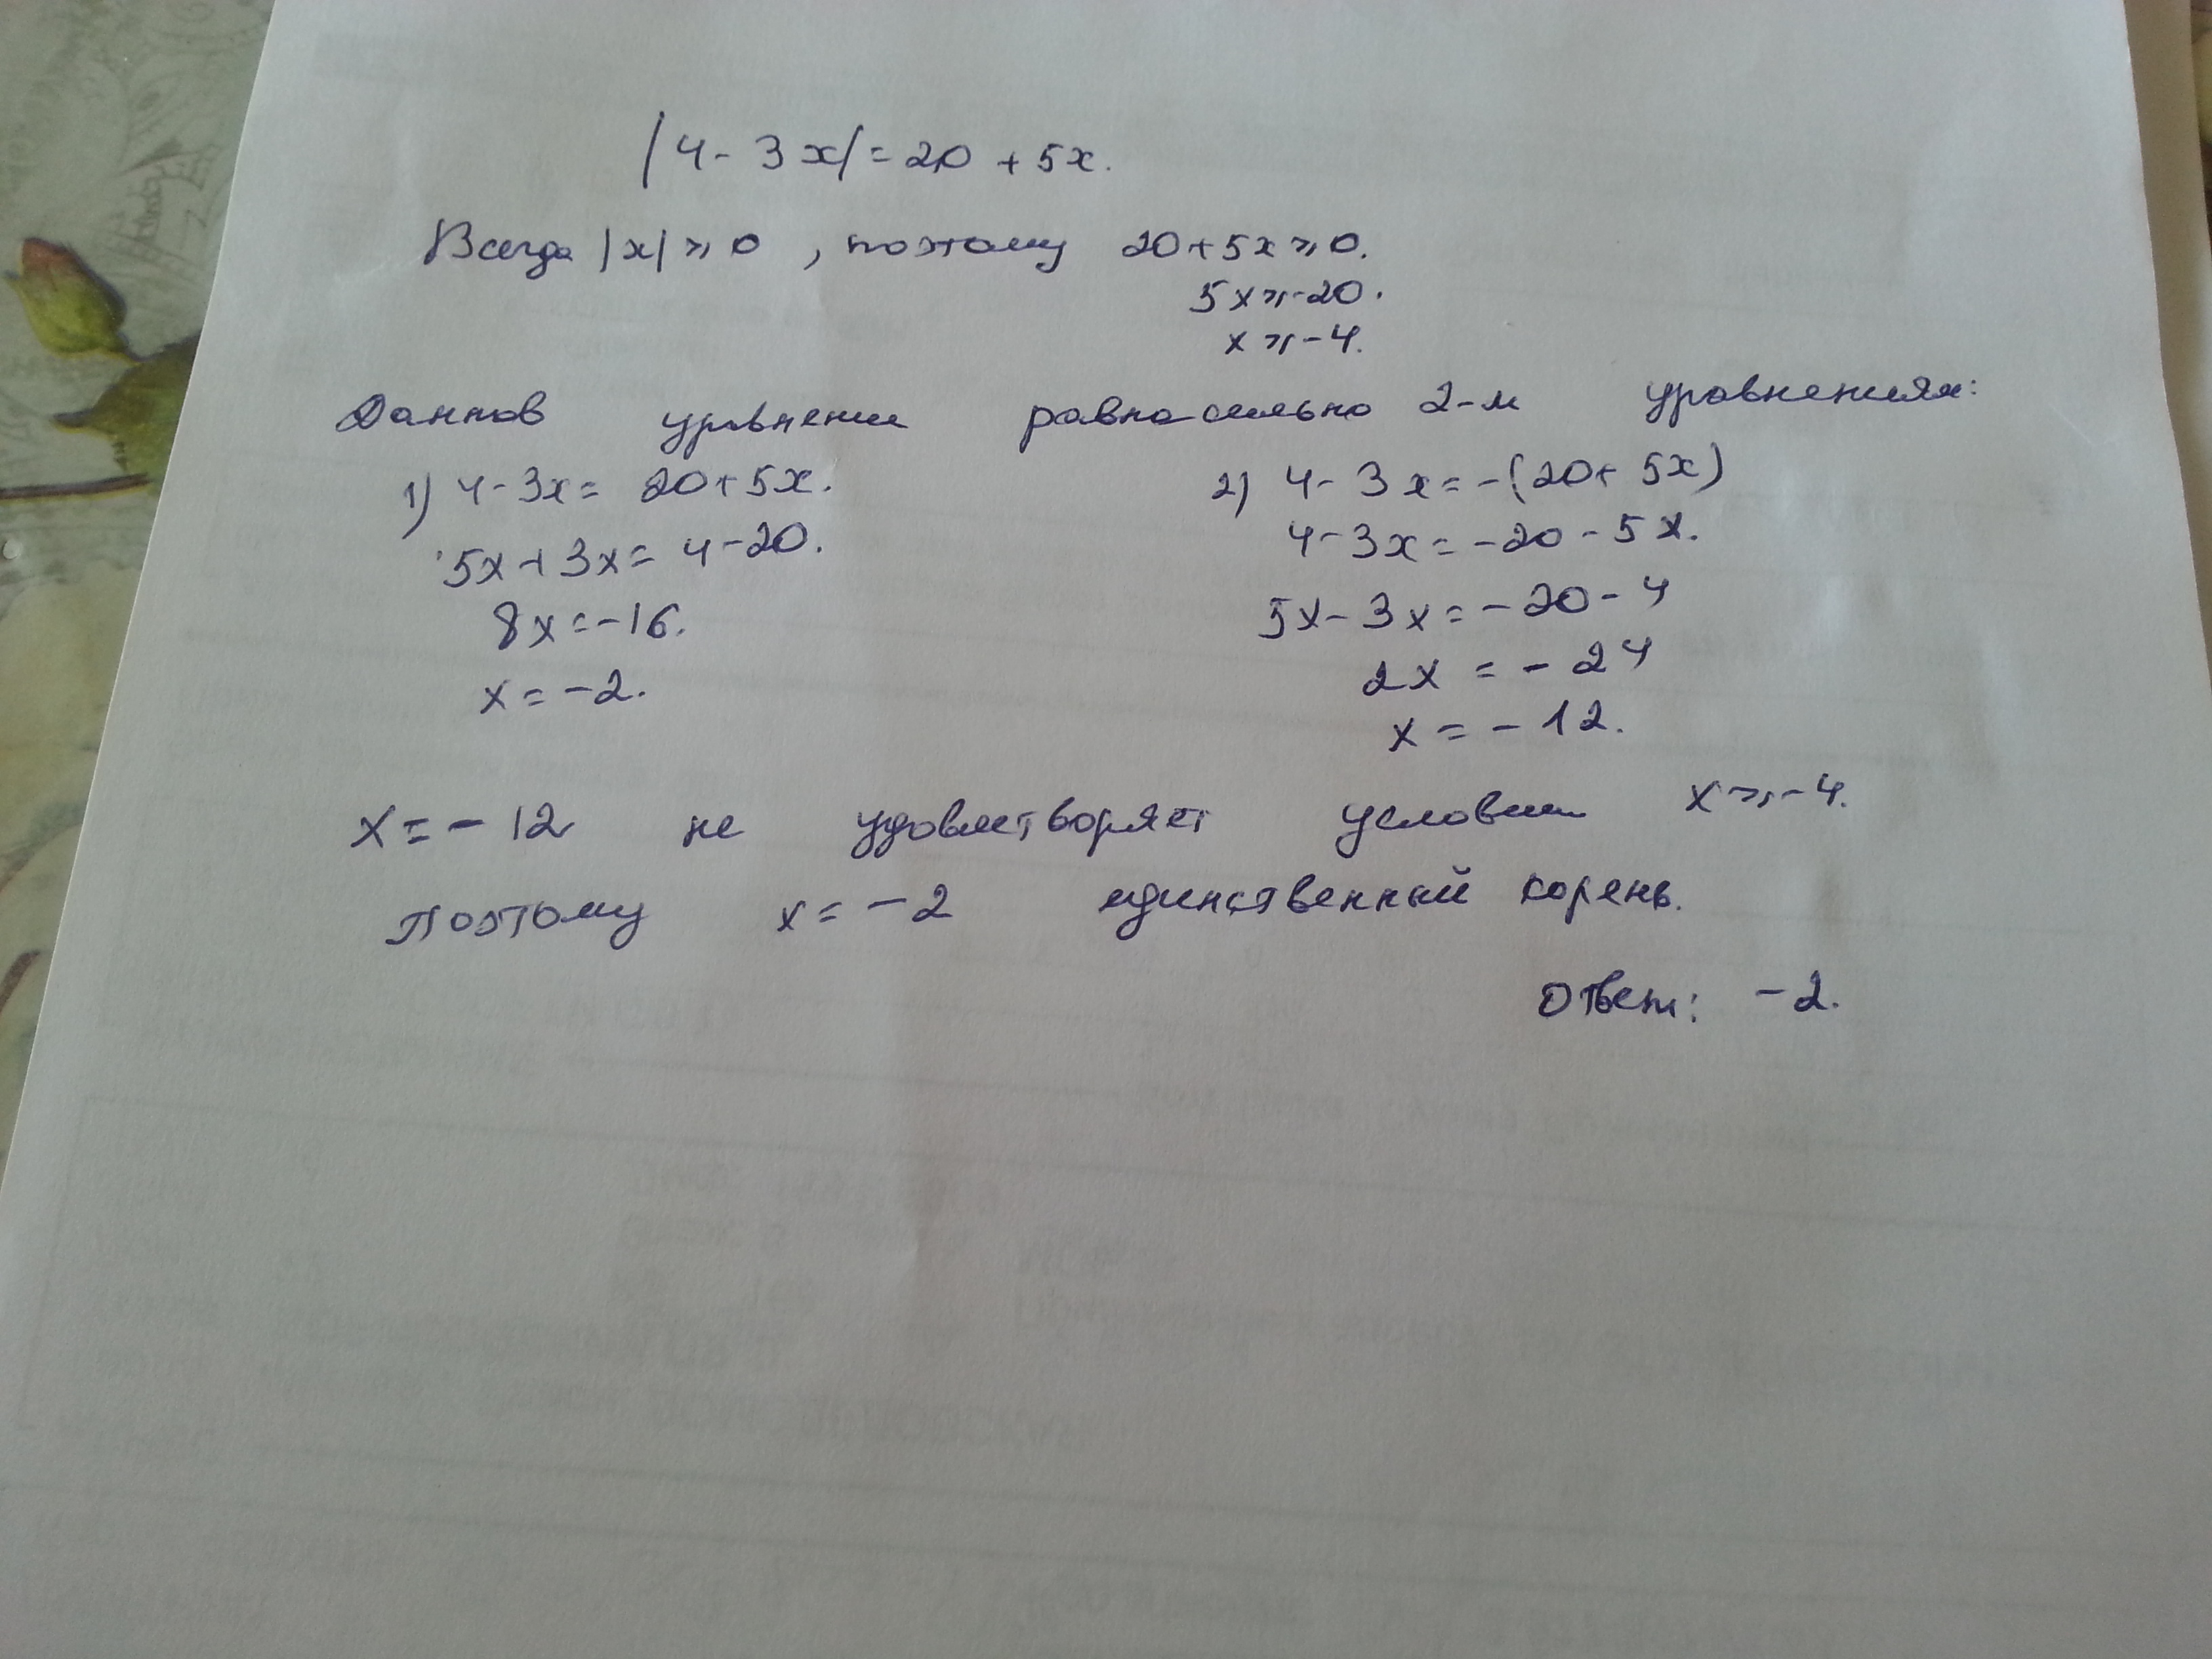 |4 - 3x| = 20 + 5x.
Всегда |x| ⩾ 0, поэтому 20 + 5x ⩾ 0.
5x ⩾ -20.
x ⩾ -4.
Данное уравнение равносильно 2-м уравнениям:
1) 4 - 3x = 20 + 5x. 2) 4 - 3x = -(20 + 5x)
5x + 3x = 4 - 20. 4 - 3x = -20 - 5x.
8x = -16. 5x - 3x = -20 - 4
x = -2. 2x = -24
x = -12.
x = -12 не удовлетворяет условию x ⩾ -4.
Поэтому x = -2 единственный корень.
Ответ: -2.